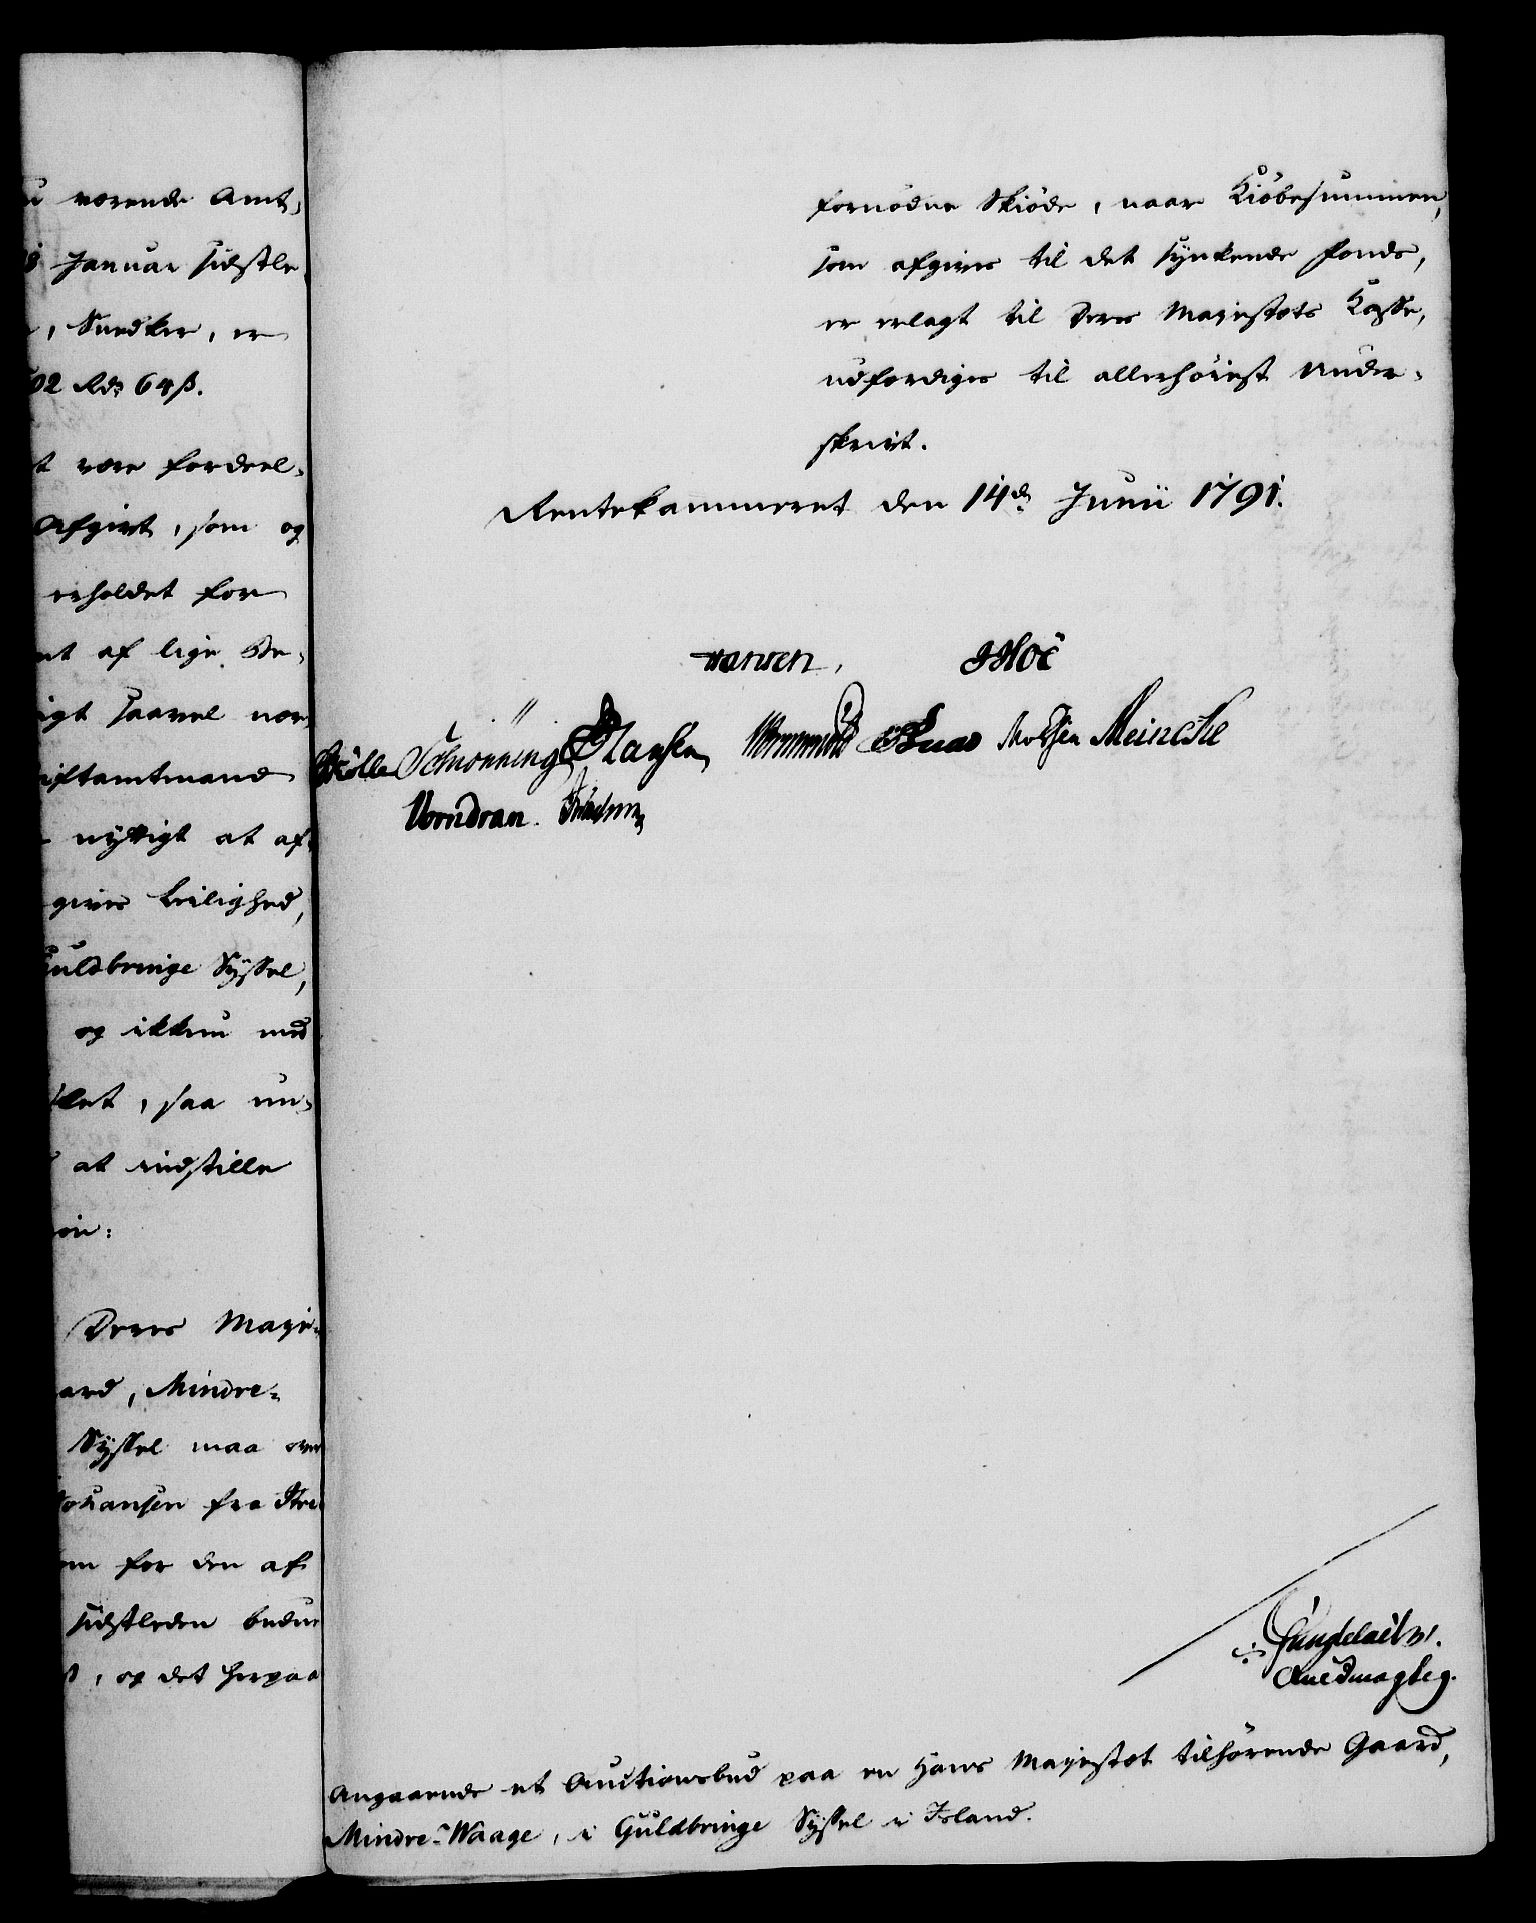 værende Amt,
Januar sidstle
, Snedker, er
02 Rd 64 ß.
være fordeel-
Afgivt, som og
erholdet for
af lige Be-
saavel nær
iftamtmand
nyttigt at af-
gives Leilighed,
Guldbringe Syssel,
og ikkun med
let, saa un-
at indstille
on:
Deres Maje-
aard, Mindre-
Syssel maa over
Johansen fra
om for den af
sidstleden budne
, og det herpaa
fornødne Skiøde, naar Kiøbesummen,
som afgives til det synkende Fonds,
er erlagt til Deres Majestæts Kasse,
udfærdiges til allerhøiest Under-
skrivt.
Rentekammeret den 14de Junii 1791.
Hansen, Hoë
Schiønning Hansen Wormskiold Knad Meincke
Vorndran.
Angaaende et Auctionsbud paa en Hans Majestæt tilhørende Gaard,
Mindre-Waage, i Guldbringe Syssel i Island.